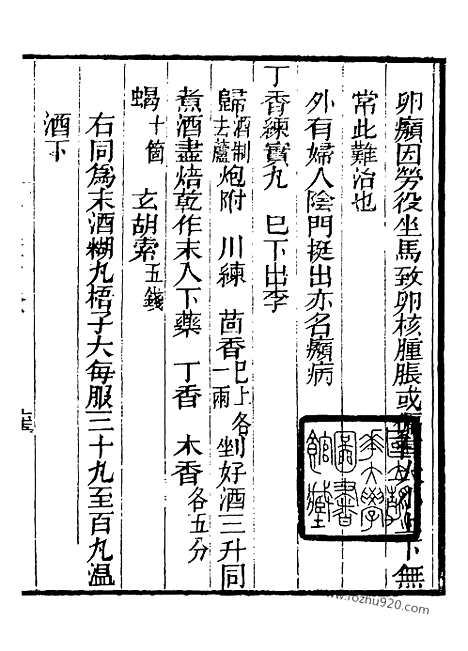 卵㿗因勞役坐馬致卵核腫脹或偏大小上下無
常此難治也
外有婦人陰門挺出亦名㿗病
丁香練實丸 巳下出李
歸酒制去蘆炮附 川練 茴香巳上各一兩 剉好酒三升同
煮酒盡焙乾作末入下藥 丁香 木香各五分
蝎十箇 玄胡索五錢
右同為末酒糊丸梧子大每服三十丸至百丸温
酒下
國立
大學
圖書
館
www.fozhu920.com